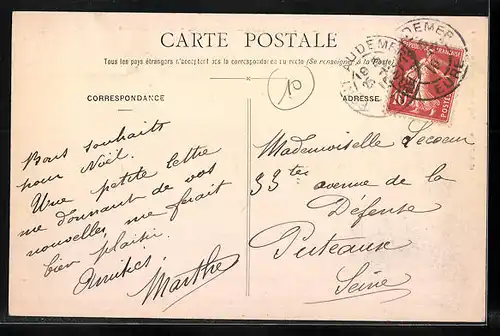 CARTE POSTALE
Tous les pays étrangers n'acceptent pas la correspondance au recto (Se renseigner à la Poste)
CORRESPONDANCE
ADRESSE
10
AUDEMER
AUDEMER
EURE
10
POSTES
Bons souhaits
pour Noël.
Une petite lettre
me donnant de vos
nouvelles me ferait
bien plaisir.
Amitiés
Marthe
Mademoiselle Lecoeur
33ter avenue de la
Défense
Puteaux
Seine